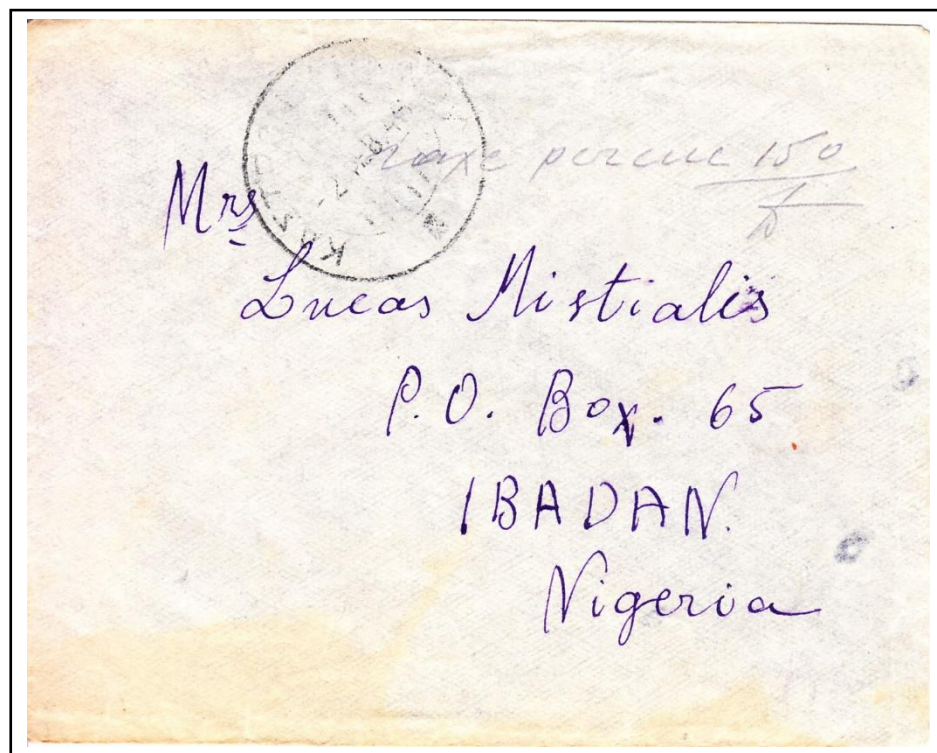 taxe percue 150
Mrs
Lucas Mistialis
P.O. Box. 65
IBADAN.
Nigeria